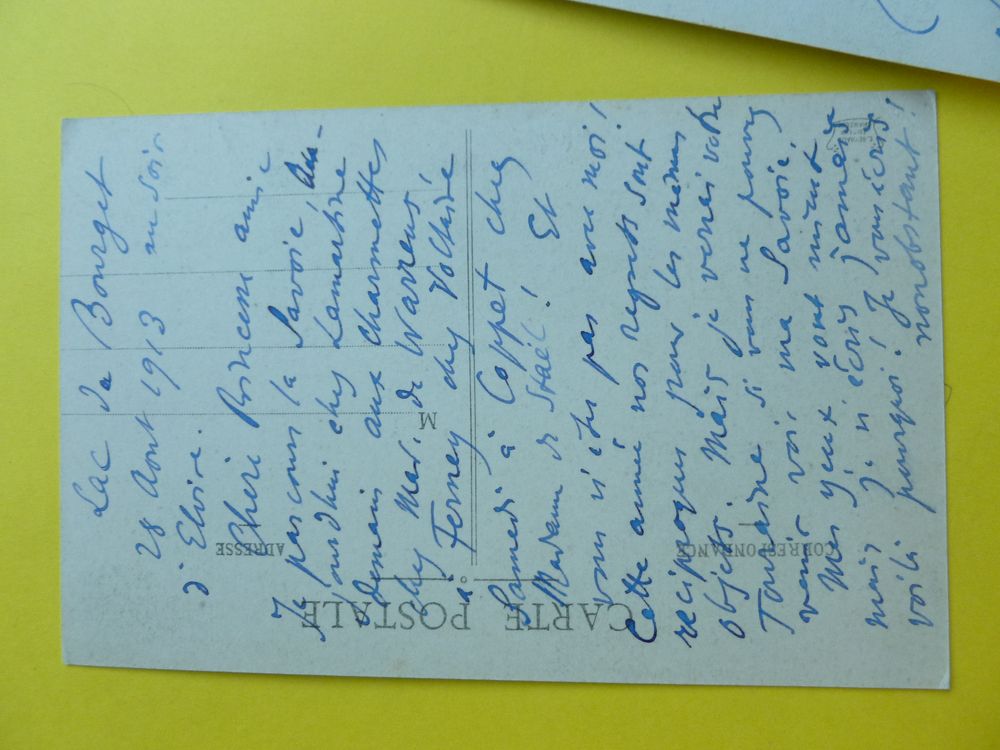 Lac du Bourget
28 Aout 1913 au soir
d'Elvire.
Chère Princesse amie
Je parcours la Savoie, au-
jourdhui chez Lamartine
demain aux Charmettes
chez Mad. de Warrens
a Ferney chez Voltaire
Samedi à Coppet chez
Madame de Staël! Et
vous n'êtes pas avec moi!
Cette année nos regrets sont
reciproques pour les mêmes
objets. Mais je verrai votre
Touraine si vous ne pouvez
venir voir ma Savoie.
Mes yeux vont mieux
mais je n'écris jamais
voilà pourquoi! Je vous écris
nonobstant!
CARTE POSTALE
CORRESPONDANCE
ADRESSE
M